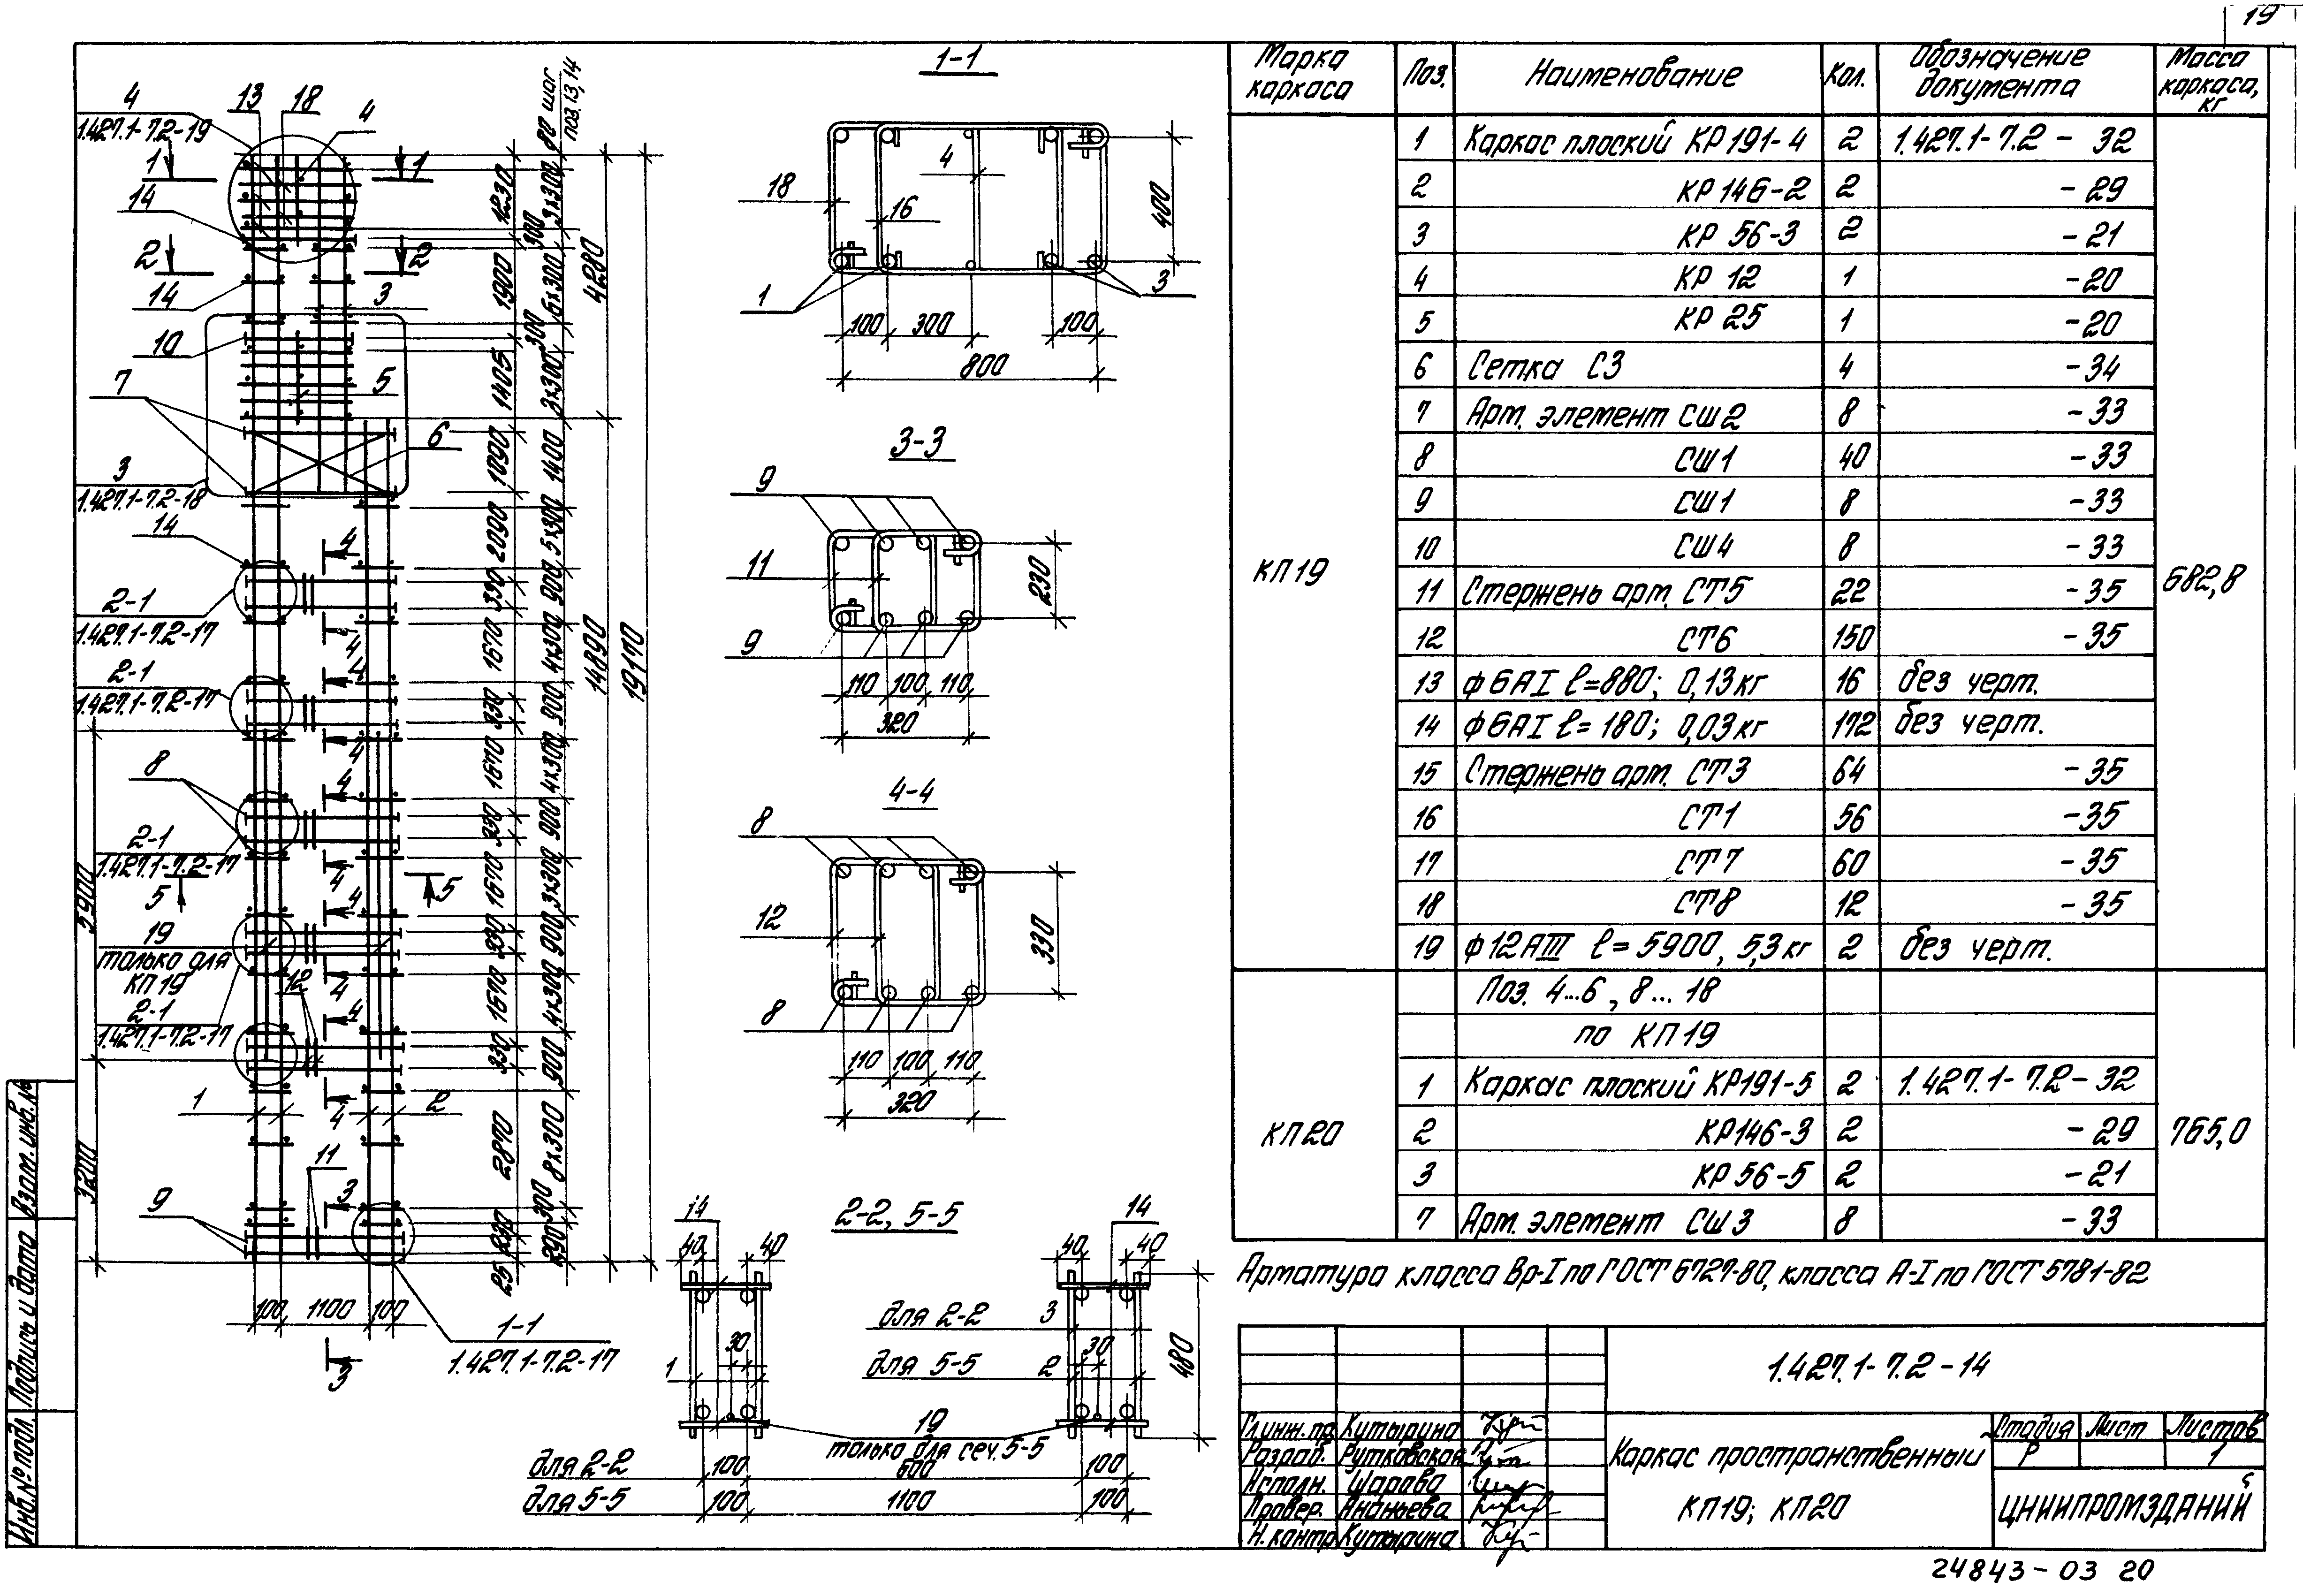 19
4
1.427.1-7.2-19
13
18
4
80 шаг
поз.13,14
1
1
14
2
2
14
3
10
7
5
6
3
1.427.1-7.2-18
14
4
2-1
1.427.1-7.2-17
4
4
2-1
1.427.1-7.2-17
4
8
4
2-1
1.427.1-7.2-17
4
5
5
4
19
только для
КП19
12
4
2-1
1.427.1-7.2-17
4
4
1
2
11
3
9
100 1100 100
1-1
1.427.1-7.2-17
3
5900
3200
1230
300
1900
300
1405
1090
2090
330
1670
330
1670
330
1670
330
1670
330
2870
230
25
3х300
6х300
3х300
1400
5х300
900
4х300
900
4х300
900
3х300
900
4х300
900
8х300
300
290
4280
14890
19170
1-1
4
18
16
400
1
3
100 300 100
800
3-3
9
11
230
9
110 100 110
320
4-4
8
12
330
8
110 100 110
320
2-2, 5-5
14
14
40 40
40 40
для 2-2 3
30
30
для 5-5 2
1
480
19
только для сеч. 5-5
для 2-2 100 600 100
для 5-5 100 1100 100
Марка каркаса Поз. Наименование Кол. Обозначение документа Масса каркаса, кг
КП19 682,8
1 Каркас плоский КР191-4 2 1.427.1-7.2-32
2 КР146-2 2 -29
3 КР 56-3 2 -21
4 КР 12 1 -20
5 КР 25 1 -20
6 Сетка С3 4 -34
7 Арм. элемент СШ2 8 -33
8 СШ1 40 -33
9 СШ1 8 -33
10 СШ4 8 -33
11 Стержень арм. СТ5 22 -35
12 СТ6 150 -35
13 ф6АI ℓ=880; 0,13кг 16 без черт.
14 ф6АI ℓ=180; 0,03кг 172 без черт.
15 Стержень арм. СТ3 64 -35
16 СТ1 56 -35
17 СТ7 60 -35
18 СТ8 12 -35
19 ф12АIII ℓ=5900, 5,3кг 2 без черт.
КП20 765,0
Поз. 4...6, 8...18
по КП19
1 Каркас плоский КР191-5 2 1.427.1-7.2-32
2 КР146-3 2 -29
3 КР 56-5 2 -21
7 Арм. элемент СШ3 8 -33
Арматура класса Вр-I по ГОСТ 6727-80, класса А-I по ГОСТ 5781-82
1.427.1-7.2-14
Гл.инж.пр. Кутырина
Разраб. Рутковская
Исполн. Шарова
Провер. Ананьева
Н.контр Кутырина
Каркас пространственный
КП19; КП20
Стадия Лист Листов
Р 1
ЦНИИПРОМЗДАНИЙ
Инв.№ подл. Подпись и дата Взам.инв.№
24843-03 20